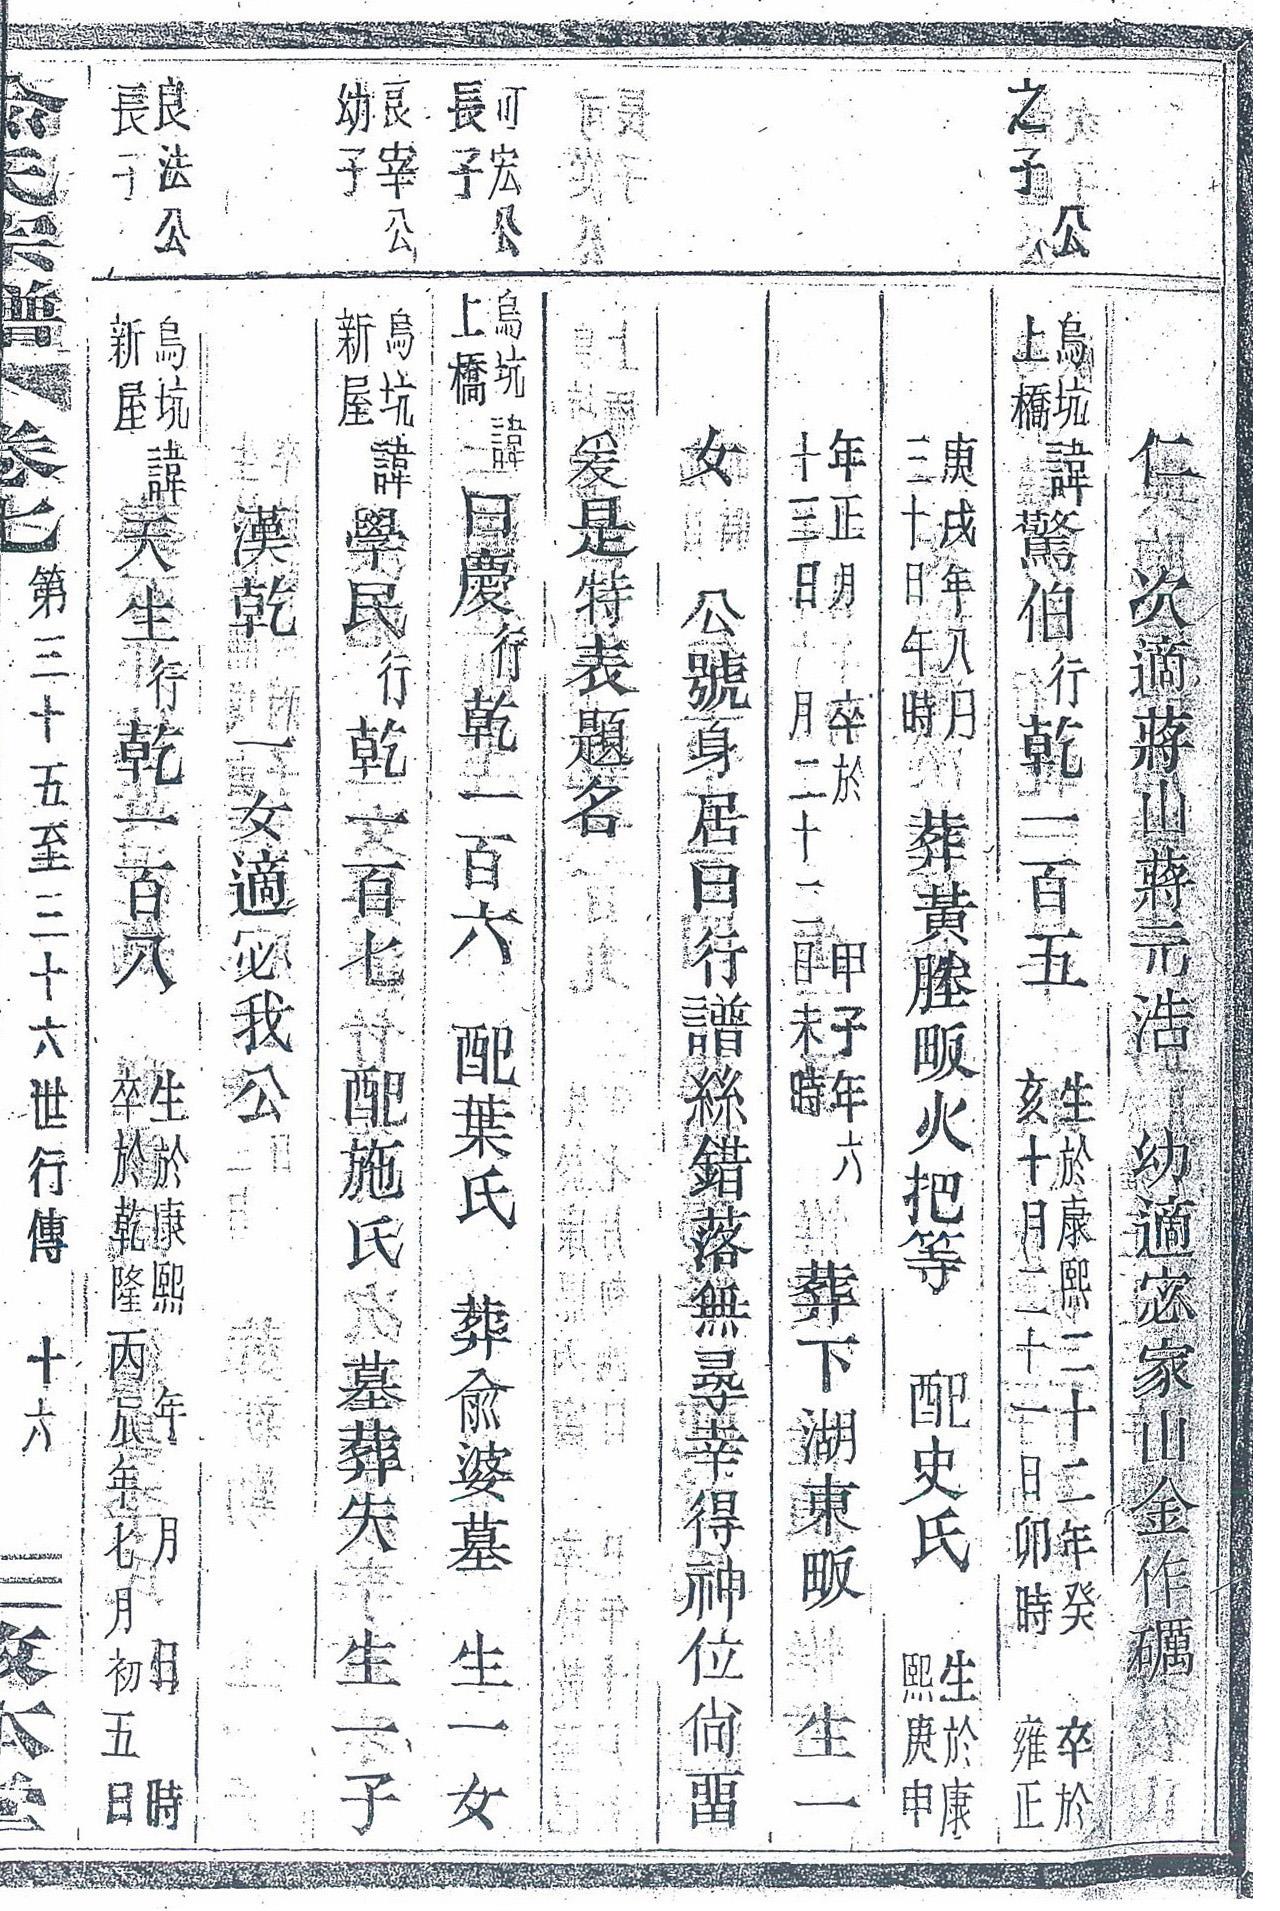 仁 次適蔣山蔣元浩 幼適宓家山金作礪
公
之子
烏坑
上橋
諱驚伯行乾一百五
生於康熙二十二年癸
亥十月二十一日卯時
卒於
雍正
庚戌年八月
三十日午時
葬黃塍畈火把等 配史氏
生於康
熙庚申
年正月
十三日
卒於
月二十二日未時
甲子年六
葬下湖東畈 生一
女 公號身居日行譜絲錯落無尋幸得神位尙畱
爰是特表題名
可宏公
長子
烏坑
上橋
諱日慶行乾一百六 配葉氏 葬俞婆墓 生一女
良宰公
幼子
烏坑
新屋
諱學民行乾一百七 配施氏 墓葬失 生一子
漢乾 一女適宓我公
良法公
長子
烏坑
新屋
諱天生行乾一百八
生於康熙 年 月 日 時
卒於乾隆丙辰年七月初五日
氏宗譜 卷七 第三十五至三十六世行傳 十六 敦本堂